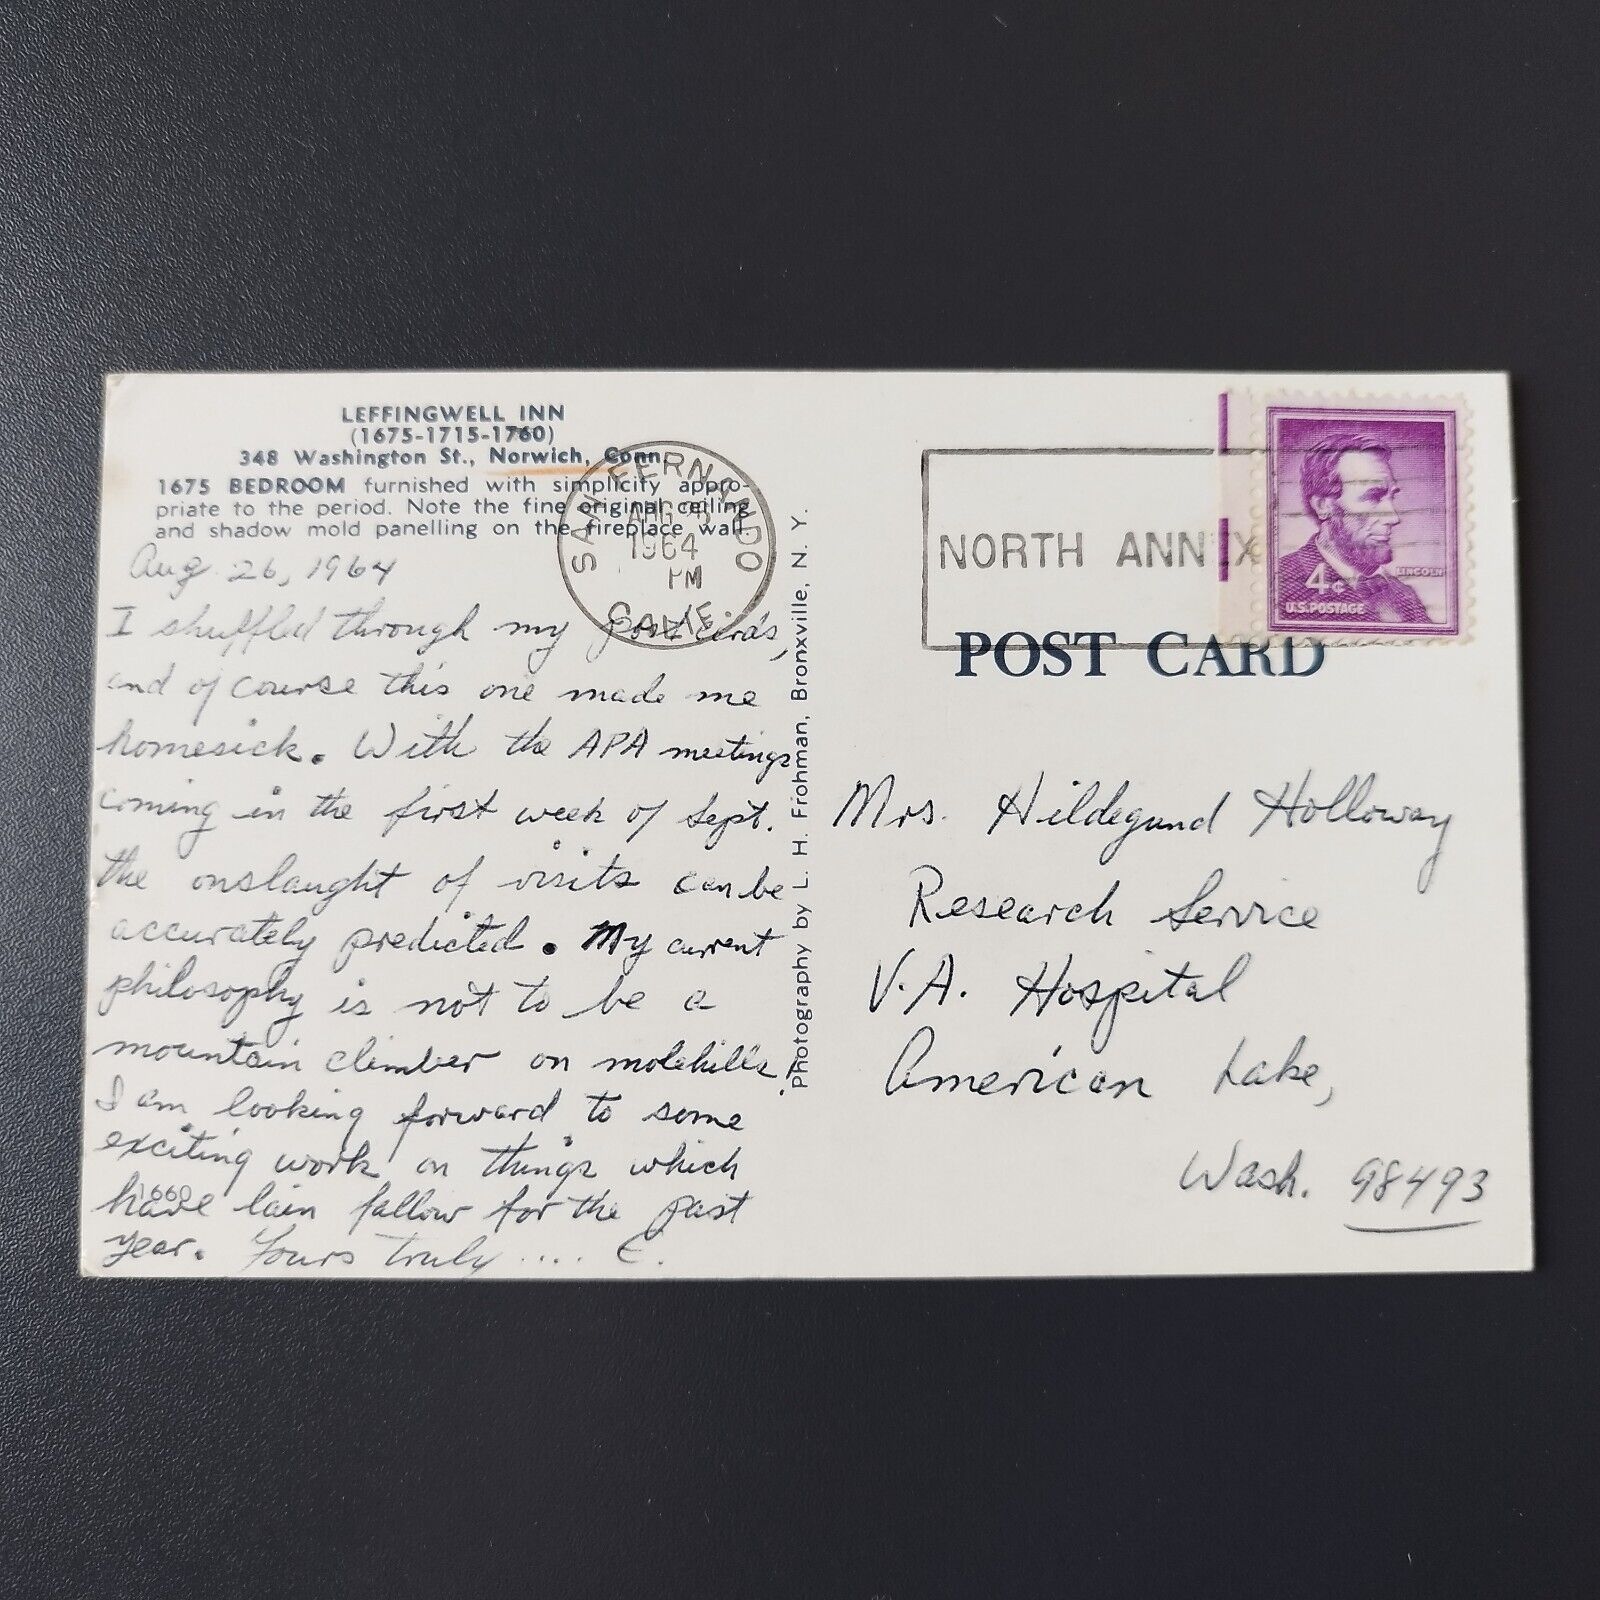 LEFFINGWELL INN
(1675-1715-1760)
348 Washington St., Norwich, Conn.
1675 BEDROOM furnished with simplicity appro-
priate to the period. Note the fine original ceiling
and shadow mold panelling on the fireplace wall.
Aug 26, 1964
I shuffled through my post cards,
and of course this one made me
homesick. With the APA meetings
coming in the first week of Sept.
the onslaught of visits can be
accurately predicted. My current
philosophy is not to be a
mountain climber on molehills.
I am looking forward to some
exciting work on things which
have lain fallow for the past
year. Yours truly .... E.
1660
Photography by L. H. Frohman, Bronxville, N. Y.
SAN FERNANDO
AUG
1964
PM
CALIF
NORTH ANNEX
4¢
LINCOLN
U.S. POSTAGE
POST CARD
Mrs. Hildegund Holloway
Research Service
V.A. Hospital
American Lake,
Wash. 98493